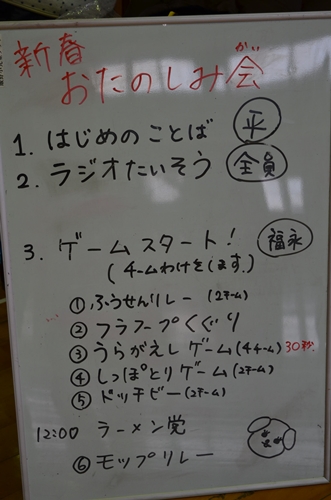 新春
おたのしみ会
が
1. はじめのことば 平
2. ラジオたいそう 全員
3. ゲームスタート! 福永
(チームわけをします。)
① ふうせんリレー (2チーム)
② フラフープくぐり
③ うらがえしゲーム (4チーム) 30秒
④ しっぽとりゲーム (2チーム)
⑤ ドッチビー (2チーム)
12:00 ラーメン党
⑥ モップリレー